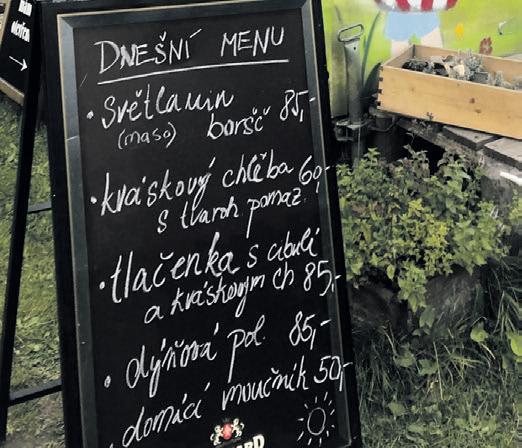 DNEŠNÍ MENU
• Světlanin
(maso) boršč 85,-
• kváskový chlěba 60,-
s tvaroh. pomaz.
• tlačenka s cibulí
a kváskovým ch 85,-
• dýňová pol. 85,-
• domácí moučník 50,-